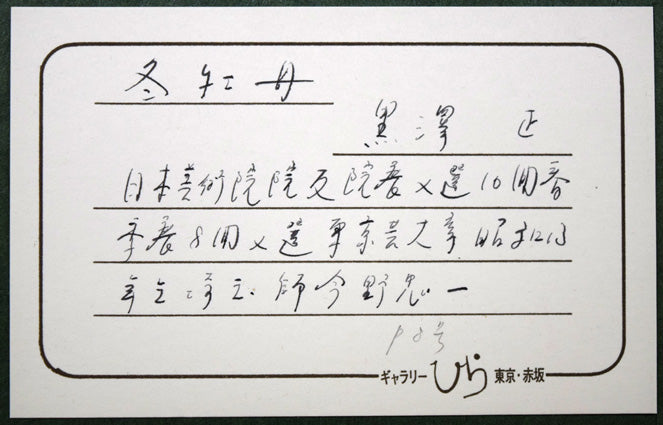 冬牡丹
黒澤 正
日本美術院院友院展入選10回春
季展8回入選東京芸大卒昭和
年 師今野忠一
P8号
ギャラリーひら 東京・赤坂